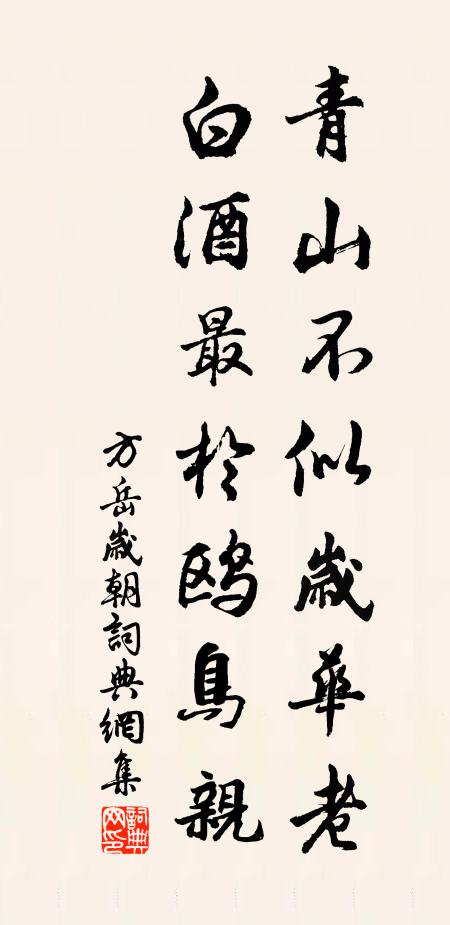 青山不似歲華老
白酒最於鷗鳥親
方岳歲朝詞典網集
詞典網印